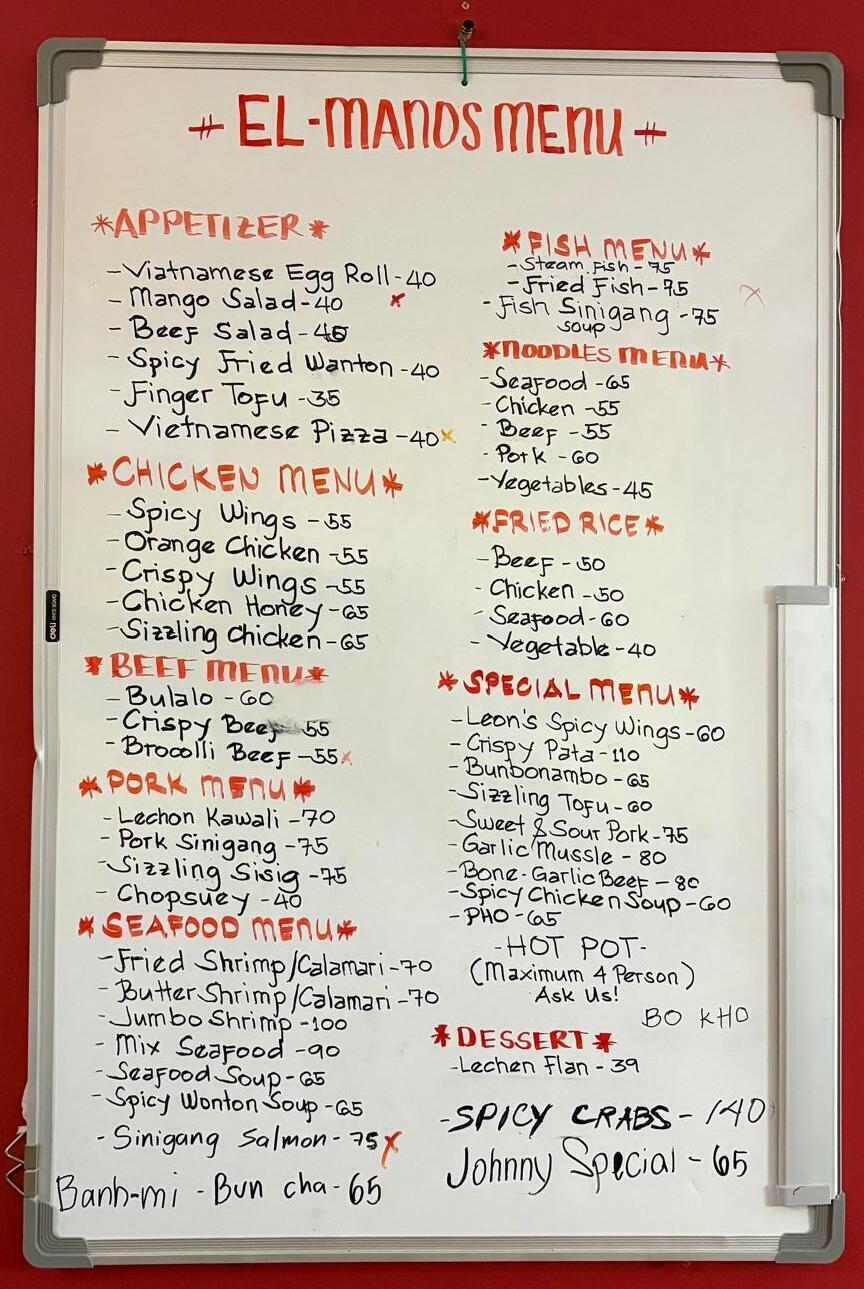 EL-MANOS MENU
*APPETIZER*
-Viatnamese Egg Roll-40
-Mango Salad-40 x
-Beef Salad-45
-Spicy Fried Wanton-40
-Finger Tofu-35
-Vietnamese Pizza-40x
*CHICKEN MENU*
-Spicy Wings-55
-Orange Chicken-55
-Crispy Wings-55
-Chicken Honey-65
-Sizzling Chicken-65
*BEEF MENU*
-Bulalo-60
-Crispy Beef 55
-Brocolli Beef-55x
*PORK MENU*
-Lechon Kawali-70
-Pork Sinigang-75
-Sizzling Sisig-75
-Chopsuey-40
*SEAFOOD MENU*
-Fried Shrimp/Calamari-70
-Butter Shrimp/Calamari-70
-Jumbo Shrimp-100
-Mix Seafood-90
-Seafood Soup-65
-Spicy Wonton Soup-65
-Sinigang Salmon-75x
Banh-mi - Bun cha-65
*FISH MENU*
-Steam Fish-75
-Fried Fish-75 x
-Fish Sinigang-75
soup
*NOODLES MENU*
-Seafood-65
-Chicken-55
-Beef-55
-Pork-60
-Vegetables-45
*FRIED RICE*
-Beef-50
-Chicken-50
-Seafood-60
-Vegetable-40
*SPECIAL MENU*
-Leon's Spicy Wings-60
-Crispy Pata-110
-Bunbonambo-65
-Sizzling Tofu-60
-Sweet & Sour Pork-75
-Garlic Mussle-80
-Bone-Garlic Beef-80
-Spicy Chicken Soup-60
-PHO-65
-HOT POT-
(Maximum 4 Person)
Ask Us!
BO KHO
*DESSERT*
-Lechen Flan-39
-SPICY CRABS-140
Johnny Special-65
deli WHITE BOARD